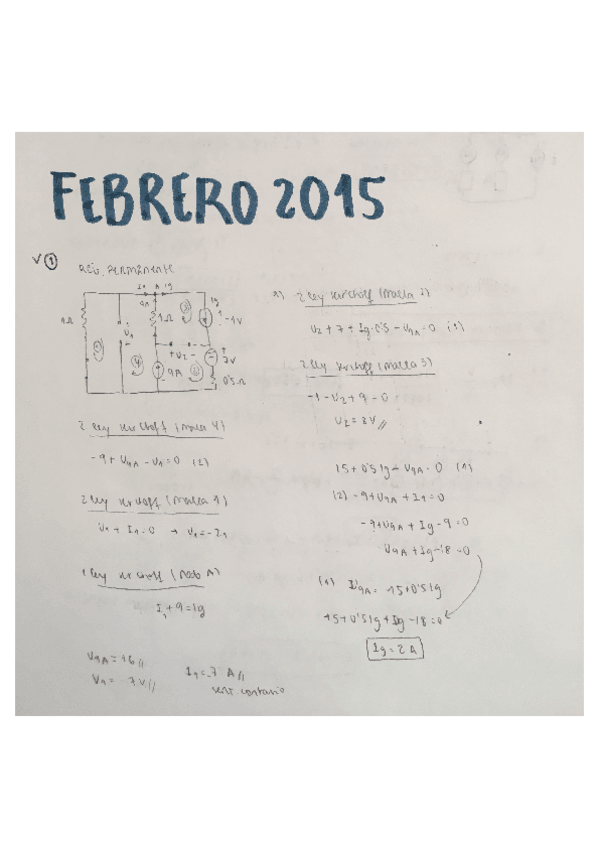 FEBRERO 2015
V ①
REG. PERMANENTE
I₁ A Ig
1Ω
9A
1Ω
Ig
-1V
V₁
+ V₂ -
7V
9A
0'5Ω
2 Ley Kirchoff (Malla 4)
-9+U9A-V1=0 (2)
2 Ley Kirchoff (Malla 1)
V1+I1=0 → V1=-I1
1 Ley Kirchoff (Nudo A)
I1+9=Ig
U9A=16//
V1= -7V//
I1=-7 A//
sent. contrario
2 Ley Kirchoff (Malla 2)
V2+7+Ig·0'5-U9A=0 (1)
2 Ley Kirchoff (Malla 3)
-1-V2+9=0
V2=8V//
15+0'5Ig-U9A=0 (1)
(2) -9+U9A+I1=0
-9+U9A+Ig-9=0
U9A+Ig-18=0
(1) U9A=15+0'5Ig
15+0'5Ig+Ig-18=0
Ig=2A